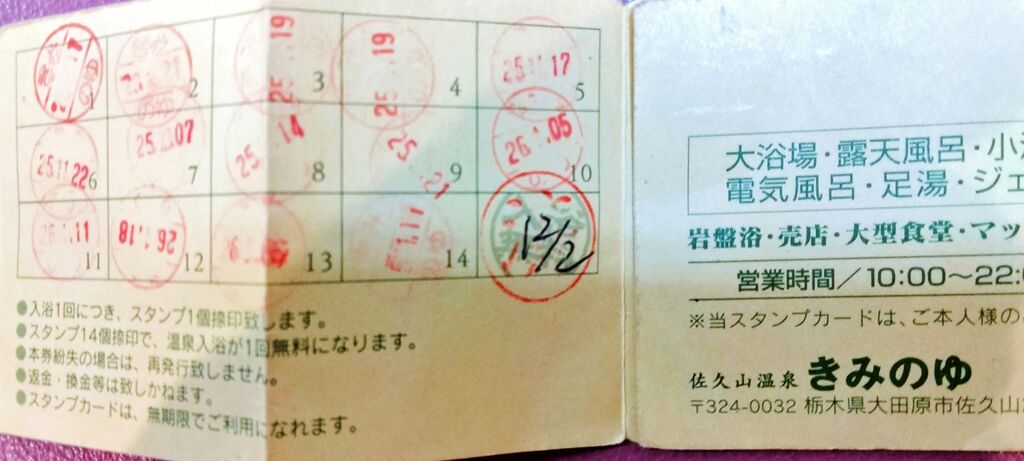 1
2
3
25 19
4
25 19
5
25.11.17
6
25.11.22
7
25. 07
8
25. 14
9
25. 21
10
26.1.05
11
26.1.11
12
26.1.18
13
14
12/2
●入浴1回につき、スタンプ1個捺印致します。
●スタンプ14個捺印で、温泉入浴が1回無料になります。
●本券紛失の場合は、再発行致しません。
●返金・換金等は致しかねます。
●スタンプカードは、無期限でご利用になれます。
大浴場・露天風呂・小
電気風呂・足湯・ジェ
岩盤浴・売店・大型食堂・マッ
営業時間/10:00〜22:
※当スタンプカードは、ご本人様の
佐久山温泉 きみのゆ
〒324-0032 栃木県大田原市佐久山